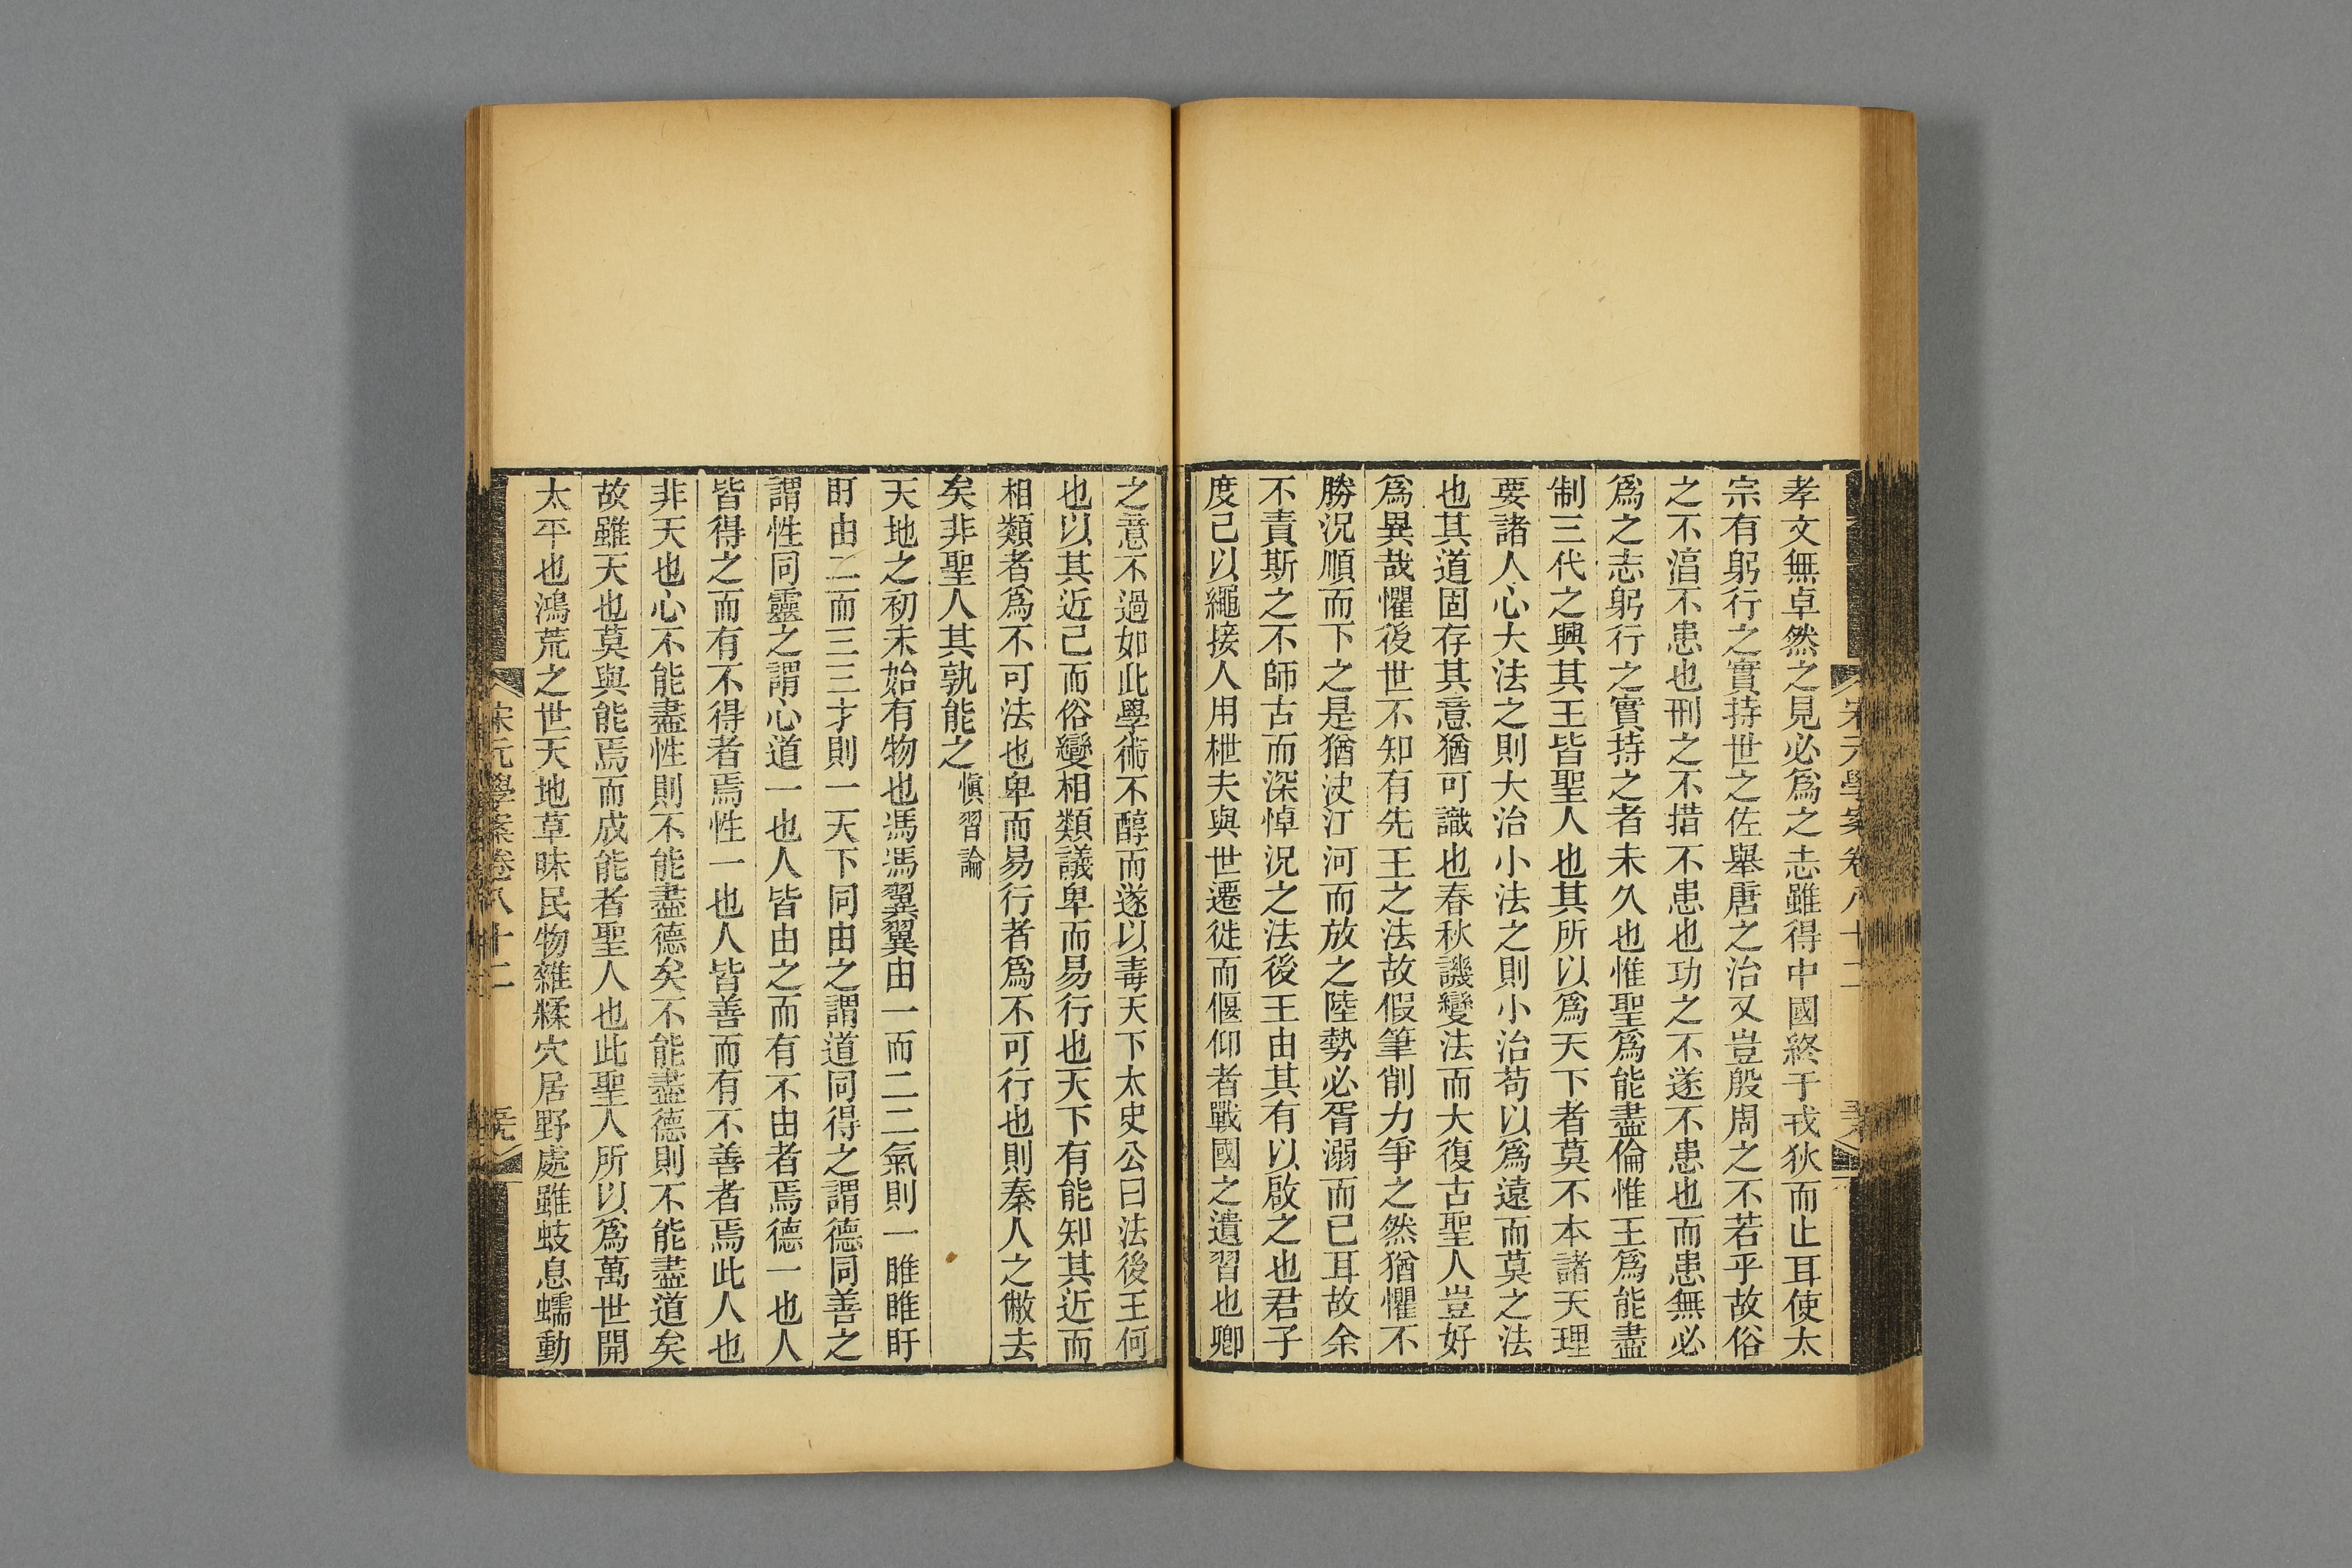 孝文無卓然之見必爲之志雖得中國終于戎狄而止耳使太
宗有躬行之實持世之佐舉唐之治又豈殷周之不若乎故俗
之不湻不患也刑之不措不患也功之不遂不患也而患無必
爲之志躬行之實持之者未久也惟聖爲能盡倫惟王爲能盡
制三代之興其王皆聖人也其所以爲天下者莫不本諸天理
要諸人心大法之則大治小法之則小治苟以爲遠而莫之法
也其道固存其意猶可識也春秋譏變法而大復古聖人豈好
爲異哉懼後世不知有先王之法故假筆削力爭之然猶懼不
勝況順而下之是猶決江河而放之陸勢必胥溺而已耳故余
不責斯之不師古而深悼況之法後王由其有以啟之也君子
度己以繩接人用枻夫與世遷徙而偃仰者戰國之遺習也卿
之意不過如此學術不醇而遂以毒天下太史公曰法後王何
也以其近己而俗變相類議卑而易行也天下有能知其近而
相類者爲不可法也卑而易行者爲不可行也則秦人之僘去
矣非聖人其孰能之慎習論
天地之初未始有物也馮馮翼翼由一而二二氣則一睢睢盱
盱由二而三三才則一天下同由之謂道同得之謂德同善之
謂性同靈之謂心道一也人皆由之而有不由者焉德一也人
皆得之而有不得者焉性一也人皆善而有不善者焉此人也
非天也心不能盡性則不能盡德矣不能盡德則不能盡道矣
故雖天也莫與能焉而成能者聖人也此聖人所以爲萬世開
太平也鴻荒之世天地草昧民物雜糅穴居野處雖蚑息蠕動
宋元學案卷八十二